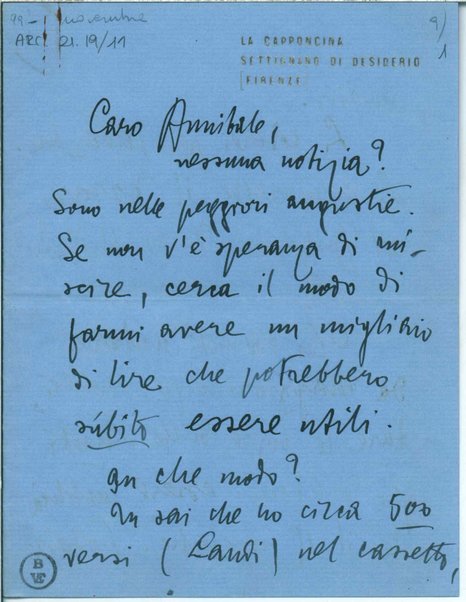 99-1 novembre
ARC. 21.19/11
9)
1
LA CAPPONCINA
SETTIGNANO DI DESIDERIO
(FIRENZE)
Caro Annibale,
nessuna notizia?
Sono nelle peggiori angustie.
Se non v'è speranza di riu-
scire, cerca il modo di
farmi avere un migliaio
di lire che potrebbero
sùbito essere utili.
In che modo?
Tu sai che ho circa 500
versi (Laudi) nel cassetto,
B
VE